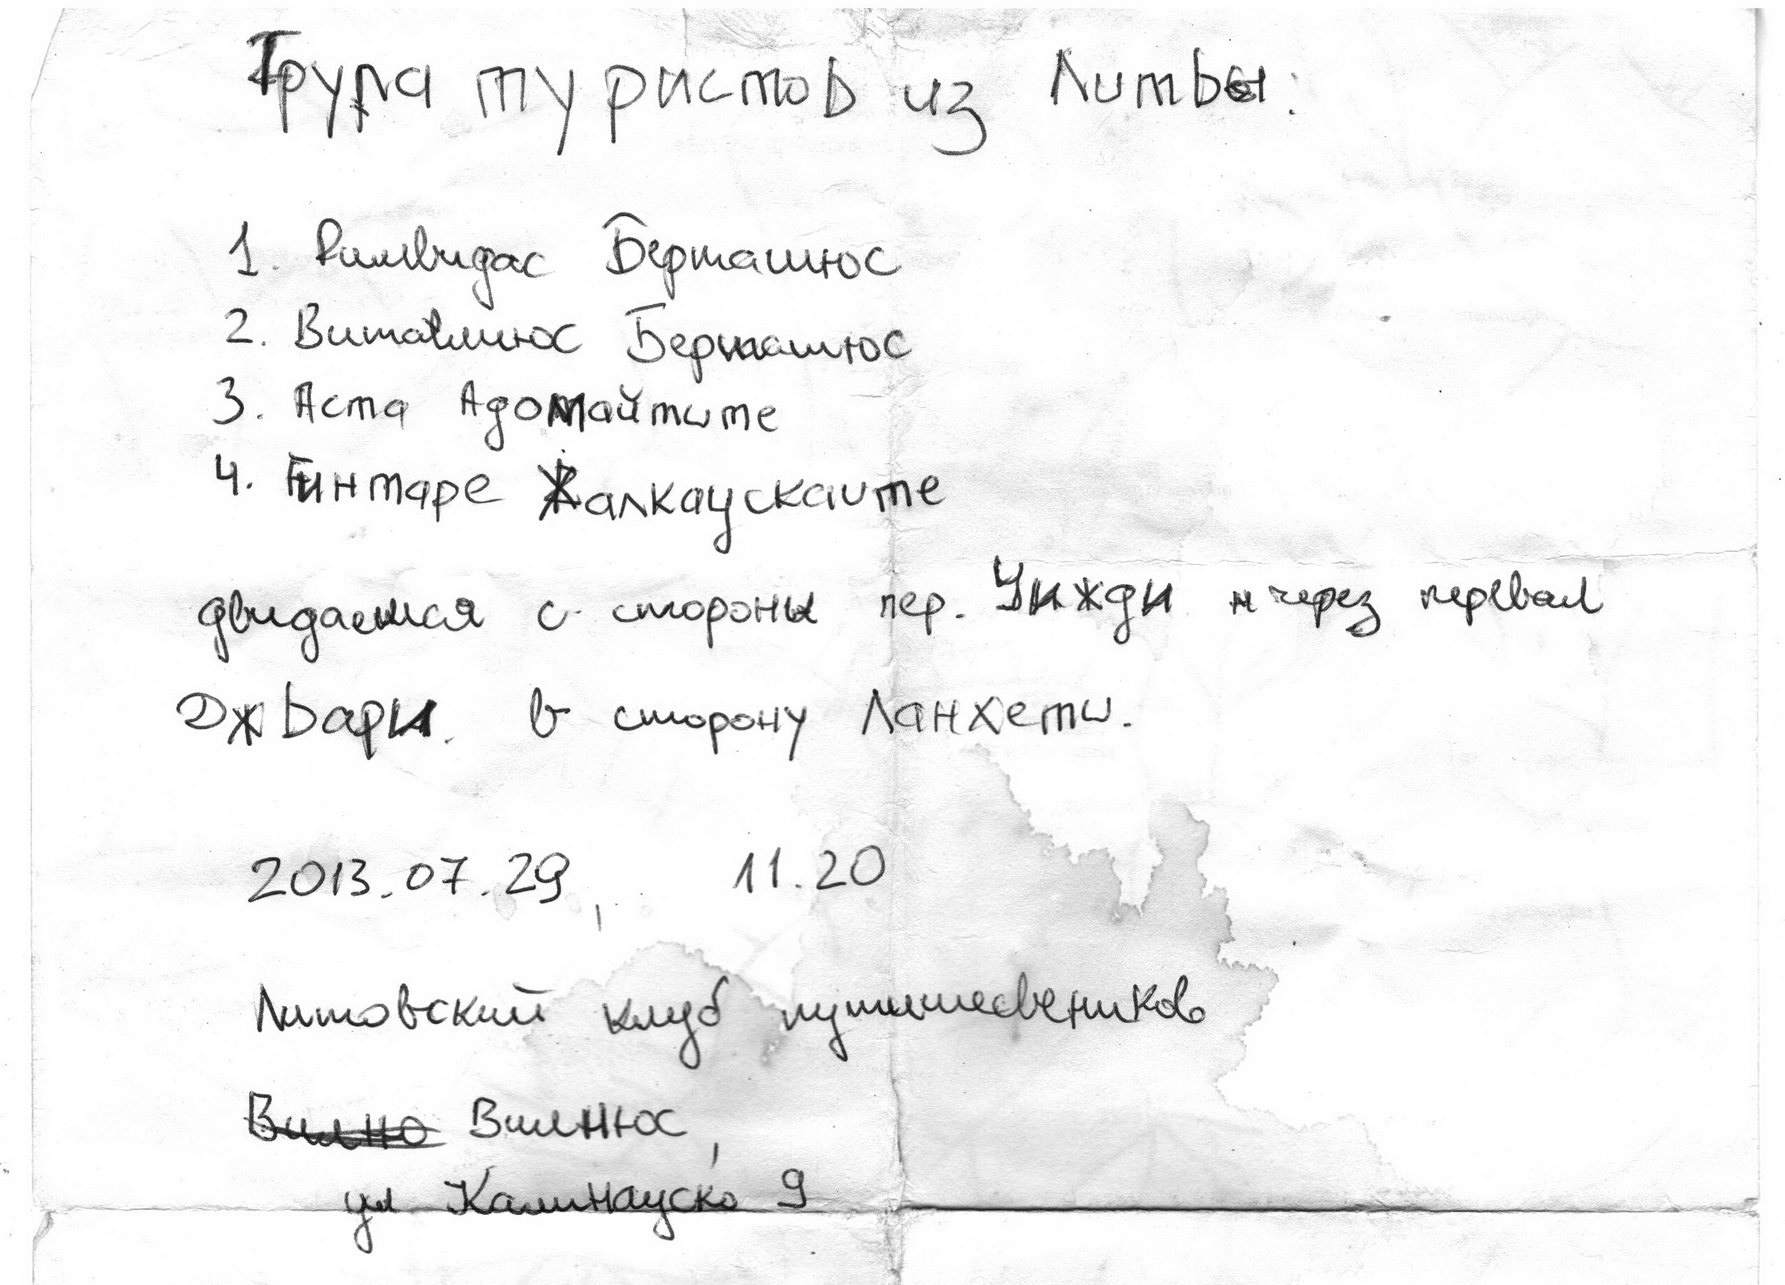 Група туристов из Литвы:
1. Римвидас Берташюс
2. Витавлиюс Берташюс
3. Аста Адомайтите
4. Гинтаре Жалкаускаите
двидаемся с стороны пер. Уижди и через перевал
Джвари. в сторону Ланхети.
2013.07.29, 11.20
Литовский клуб путишесвеников
Вилно Вилнюс,
ул Калинауско 9